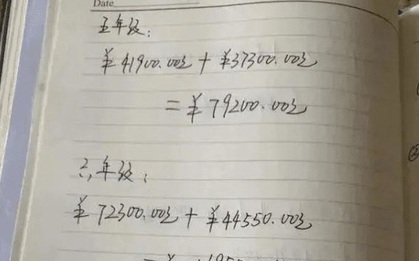 Date
五年级:
¥41900.00元 + ¥37300.00元
= ¥79200.00元
六年级:
¥72300.00元 + ¥44550.00元